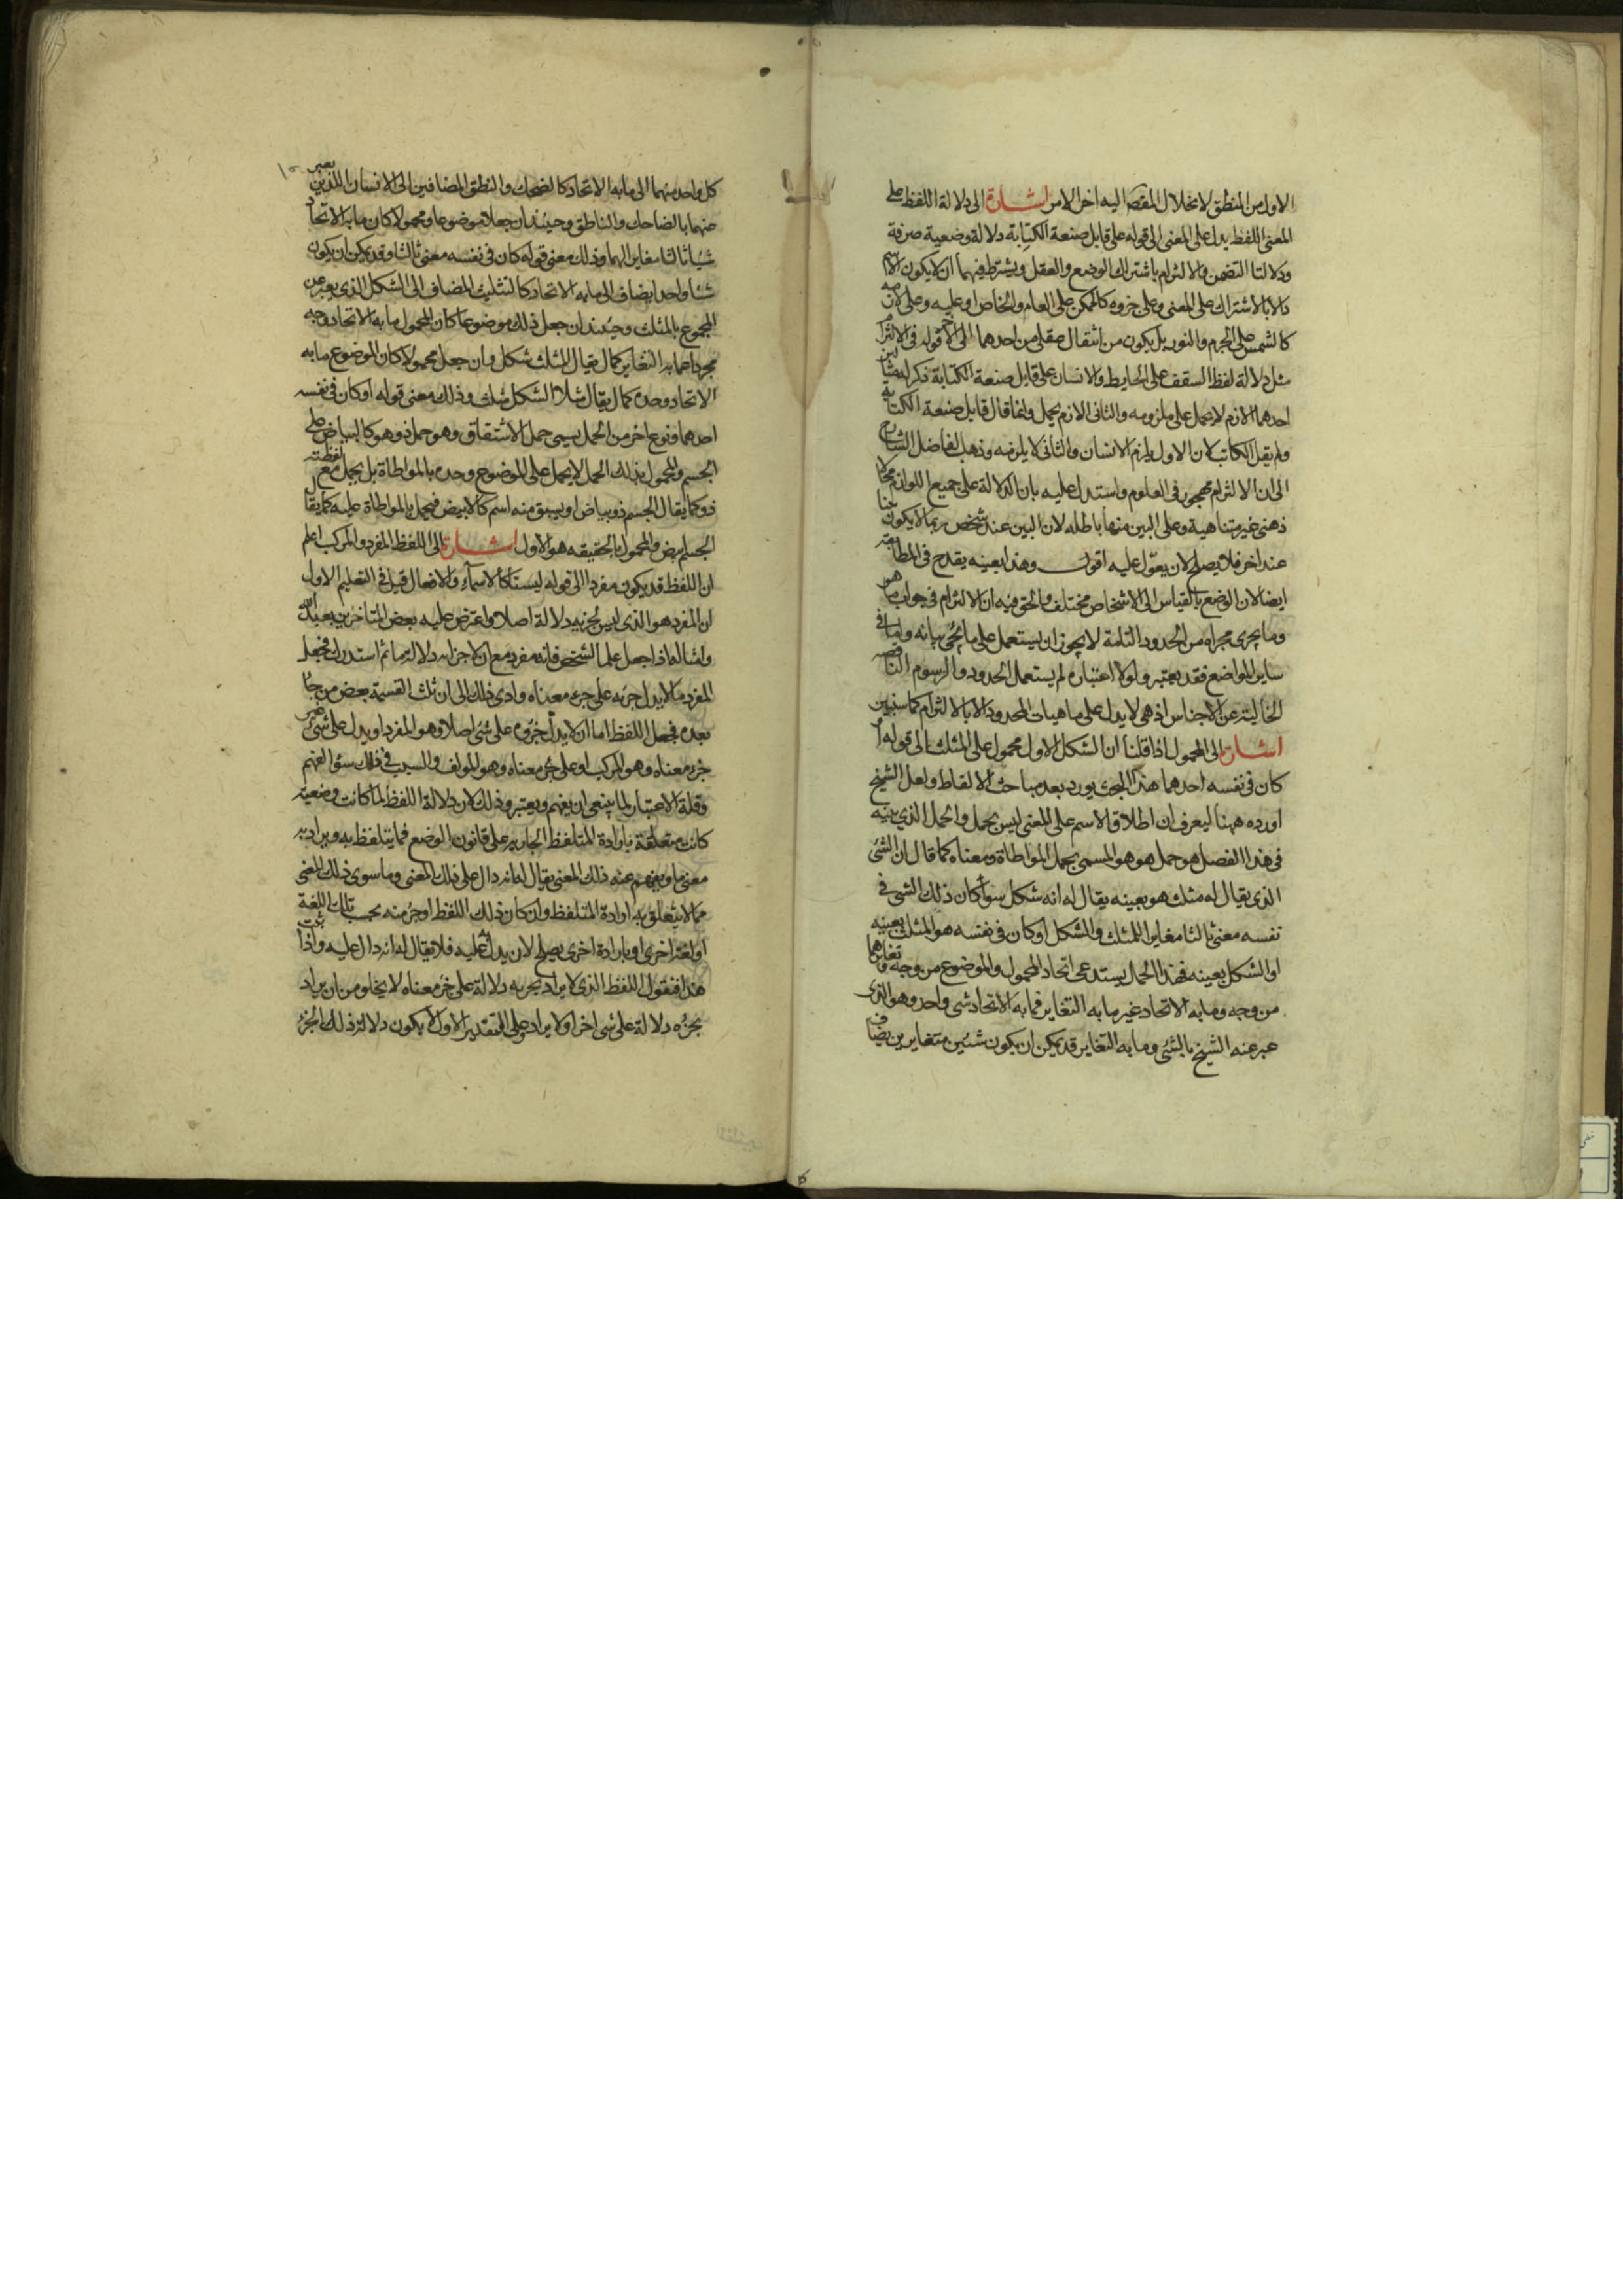 الاول من المنطق لانحلال المقصد اليه اخر الامر اشارة الى دلالة اللفظ على
المعنى اللفظ يدل على المعنى الى قوله على قابل صنعة الكتابة دلالة وضعية صرفة
ودلالتا التضمن والالتزام باشتراك الوضع والعقل ويشترط فيهما ان لا يكون الاسم
دالا بالاشتراك على المعنى وعلى جزوه كالممكن على العام والخاص او عليه وعلى لازمه
كالشمس على الجرم والنور بل يكون من انتقال عقلى من احدهما الى الاخر قوله فى الالتزام
مثل دلالة لفظ السقف على الحايط والانسان على قابل صنعة الكتابة ذكر له مثالين
احدهما لازم لا يحمل على ملزومه والثانى لازم يحمل وانما قال قابل صنعة الكتابة
ولم يقل الكاتب لان الاول يلزم الانسان والثانى لا يلزمه وذهب الفاضل الشارح
الى ان الالتزام مهجور فى العلوم واستدل عليه بان الدلالة على جميع اللوازم محال اذ
هى غير متناهية وعلى البين منها باطله لان البين عند شخص ربما لا يكون بينا
عند اخر فلا يصلح لان يعول عليه اقول وهذا بعينه يقدح فى المطابقة
ايضا لان الوضع بالقياس الى الاشخاص مختلف والحق فيه ان الالتزام فى جواب ما هو
وما يجرى مجراه من الحدود التامة لا يجوز ان يستعمل على ما يجئ بيانه واما فى
ساير المواضع فقد يعتبر ولولا اعتباره لم يستعمل الحدود والرسوم الناقصه
الخالية عن الاجناس اذ هى لا يدل على ماهيات المحدود الا بالالتزام كما سنبين
اشارة الى المحمول اذا قلنا ان الشكل الاول محمول على المثلث الى قوله او
كان فى نفسه احدهما هذا البحث يورد بعد مباحث الالفاظ ولعل الشيخ
اورده ههنا ليعرف ان اطلاق الاسم على المعنى ليس بحمل والحمل الذى بينه
فى هذا الفصل هو حمل هو هو المسمى بحمل المواطاة ومعناه كما قال ان الشئ
الذى يقال له مثلث هو بعينه يقال له انه شكل سوآ كان ذلك الشئ فى
نفسه معنى ثالثا مغايرا للمثلث والشكل او كان فى نفسه هو المثلث بعينه
او الشكل بعينه فهذا الحمل يستدعى اتحاد المحمول والموضوع من وجه وتغايرهما
من وجه وما به الاتحاد غير ما به التغاير فما به الاتحاد شئ واحد وهو الذى
عبر عنه الشيخ بالشئ وما به التغاير قد يمكن ان يكون شيئين متغايرين يضاف
كل واحد منهما الى ما به الاتحاد كالضحك والنطق المضافين الى الانسان اللذين يعبر
عنهما بالضاحك والناطق وحينئذ ان جعلا موضوعا ومحمولا كان ما به الاتحاد
شيئا ثالثا مغايرا لهما وذلك معنى قوله كان فى نفسه معنى ثالثا وقد يمكن ان يكون
شيئا واحدا يضاف الى ما به الاتحاد كالتثليث المضاف الى الشكل الذى يعبر عن
المجموع بالمثلث وحينئذ ان جعل ذلك موضوعا كان المحمول ما به الاتحاد وحده
مجردا عما به التغاير كما يقال المثلث شكل وان جعل محمولا كان الموضوع ما به
الاتحاد وحده كما يقال مثلا الشكل مثلث وذلك معنى قوله او كان فى نفسه
احدهما ونوع اخر من الحمل يسمى حمل الاشتقاق وهو حمل ذو هو كالبياض على
الجسم والمحمول بذلك الحمل لا يحمل على الموضوع وحده بالمواطاة بل يحمل مع لفظة
ذو كما يقال الجسم ذو بياض او يشتق منه اسم كالابيض فيحمل بالمواطاة عليه كما يقال
الجسم ابيض والمحمول بالحقيقه هو الاول اشارة الى اللفظ المفرد والمركب اعلم
ان اللفظ قد يكون مفردا الى قوله ليستا كالاسمآء والافعال قيل فى التعليم الاول
ان المفرد هو الذى ليس لجزئه دلالة اصلا واعترض عليه بعض المتاخرين بعبد الله
وامثاله اذا جعل علما لشخص فانه مفرد مع ان لاجزائه دلالة ما ثم استدرك فجعل
المفرد ما لا يدل جزئه على جزء معناه وادى ذلك الى ان ثلث القسمة بعض من جآء
بعده فجعل اللفظ اما ان لا يدل جزوه على شئ اصلا وهو المفرد او يدل على شئ غير
جزء معناه وهو المركب او على جزء معناه وهو المولف والسبب فى ذلك سوء الفهم
وقلة الاعتبار لما ينبغى ان يفهم ويعتبر وذلك لان دلالة اللفظ لما كانت وضعية
كانت متعلقة بارادة المتلفظ الجارية على قانون الوضع فما يتلفظ به ويراد به
معنى ما ويفهم عنه ذلك المعنى يقال له انه دال على ذلك المعنى وما سوى ذلك المعنى
مما لا يتعلق به ارادة المتلفظ وان كان ذلك اللفظ او جزء منه بحسب تلك اللغة
او لغة اخرى او بارادة اخرى يصلح لان يدل به عليه فلا يقال له انه دال عليه واذا ثبت
هذا فنقول اللفظ الذى لا يراد بجزئه دلالة على جزء معناه لا يخلو من ان يراد
بجزءه دلالة على شئ اخر او لا يراد وعلى التقدير الاول لا يكون دلالة ذلك الجزء